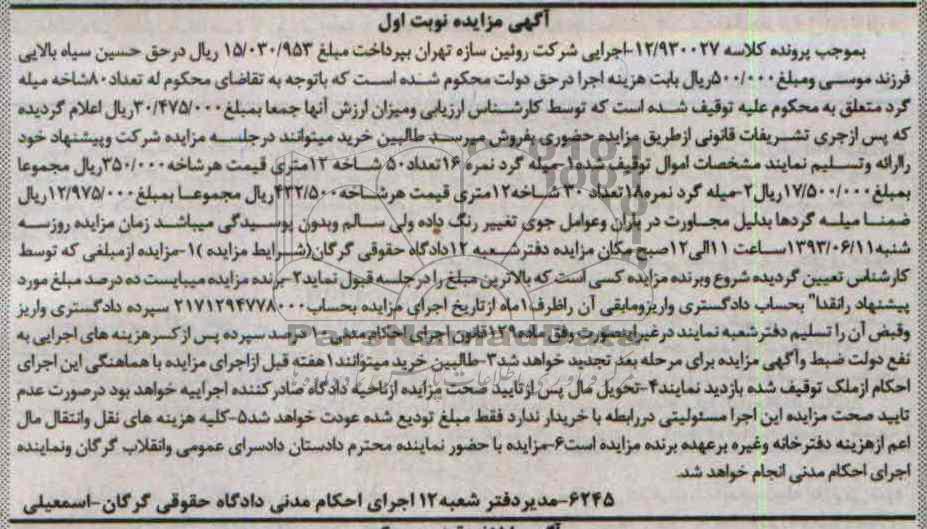 آگهی مزایده نوبت اول
بموجب پرونده کلاسه ۱۲/۹۳۰۰۲۷-اجرایی شرکت روئین سازه تهران بپرداخت مبلغ ۱۵/۰۳۰/۹۵۳ ریال درحق حسین سیاه بالایی
فرزند موسی ومبلغ۵۰۰/۰۰۰ریال بابت هزینه اجرا درحق دولت محکوم شده است که باتوجه به تقاضای محکوم له تعداد۸۰شاخه میله
گرد متعلق به محکوم علیه توقیف شده است که توسط کارشناس ارزیابی ومیزان ارزش آنها جمعا بمبلغ۳۰/۴۷۵/۰۰۰ریال اعلام گردیده
که پس ازجری تشریفات قانونی ازطریق مزایده حضوری بفروش میرسد طالبین خرید میتوانند درجلسه مزایده شرکت وپیشنهاد خود
راارائه وتسلیم نمایند مشخصات اموال توقیف شده۱-میله گرد نمره۱۶تعداد۵۰ شاخه ۱۲متری قیمت هرشاخه۳۵۰/۰۰۰ریال مجموعا
بمبلغ۱۷/۵۰۰/۰۰۰ریال۲-میله گرد نمره۱۸تعداد۳۰ شاخه۱۲متری قیمت هرشاخه۴۳۲/۵۰۰ریال مجموعا بمبلغ۱۲/۹۷۵/۰۰۰ریال
ضمنا میله گردها بدلیل مجاورت در باران وعوامل جوی تغییر رنگ داده ولی سالم وبدون پوسیدگی میباشد زمان مزایده روزسه
شنبه۱۳۹۳/۰۶/۱۱ساعت ۱۱الی۱۲صبح مکان مزایده دفترشعبه ۱۲دادگاه حقوقی گرگان(شرایط مزایده )۱-مزایده ازمبلغی که توسط
کارشناس تعیین گردیده شروع وبرنده مزایده کسی است که بالاترین مبلغ را درجلسه قبول نماید۲-برنده مزایده میبایست ده درصد مبلغ مورد
پیشنهاد رانقدا" بحساب دادگستری واریزومابقی آن راظرف۱ماه ازتاریخ اجرای مزایده بحساب۲۱۷۱۲۹۴۷۷۸۰۰۰ سپرده دادگستری واریز
وقبض آن را تسلیم دفترشعبه نمایند درغیراینصورت وفق ماده۱۲۹قانون اجرای احکام مدنی۱۰درصد سپرده پس ازکسرهزینه های اجرایی به
نفع دولت ضبط وآگهی مزایده برای مرحله بعد تجدید خواهد شد۳-طالبین خرید میتوانند۱هفته قبل ازاجرای مزایده با هماهنگی این اجرای
احکام ازملک توقیف شده بازدید نمایند۴-تحویل مال پس ازتایید صحت مزایده ازناحیه دادگاه صادرکننده اجراییه خواهد بود درصورت عدم
تایید صحت مزایده این اجرا مسئولیتی دررابطه با خریدار ندارد فقط مبلغ تودیع شده عودت خواهد شد۵-کلیه هزینه های نقل وانتقال مال
اعم ازهزینه دفترخانه وغیره برعهده برنده مزایده است۶-مزایده با حضور نماینده محترم دادستان دادسرای عمومی وانقلاب گرگان ونماینده
اجرای احکام مدنی انجام خواهد شد.
۶۲۴۵-مدیردفتر شعبه۱۲اجرای احکام مدنی دادگاه حقوقی گرگان-اسمعیلی
ParsNamadData